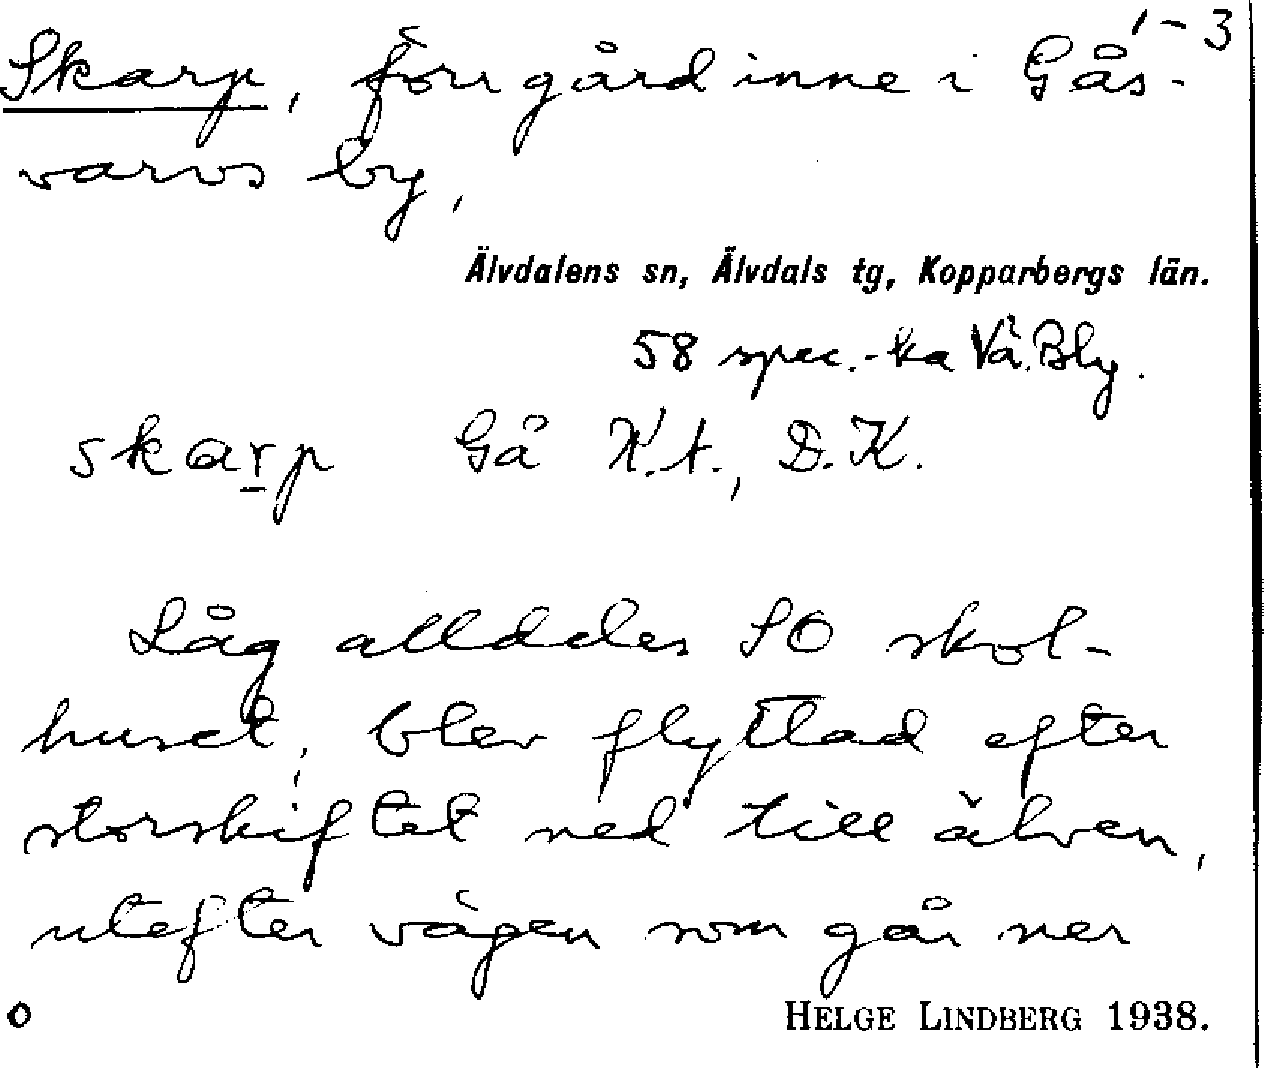 1-3
Skarp, förr gård inne i Gås-
varvs by,
Älvdalens sn, Älvdals tg, Kopparbergs län.
58 spec.-ka Vå. Bly.
skarp Gå K.t., D.K.
Låg alldeles SO skol-
huset, blev flyttad efter
storskiftet ned till älven,
utefter vägen som går ner
o HELGE LINDBERG 1938.